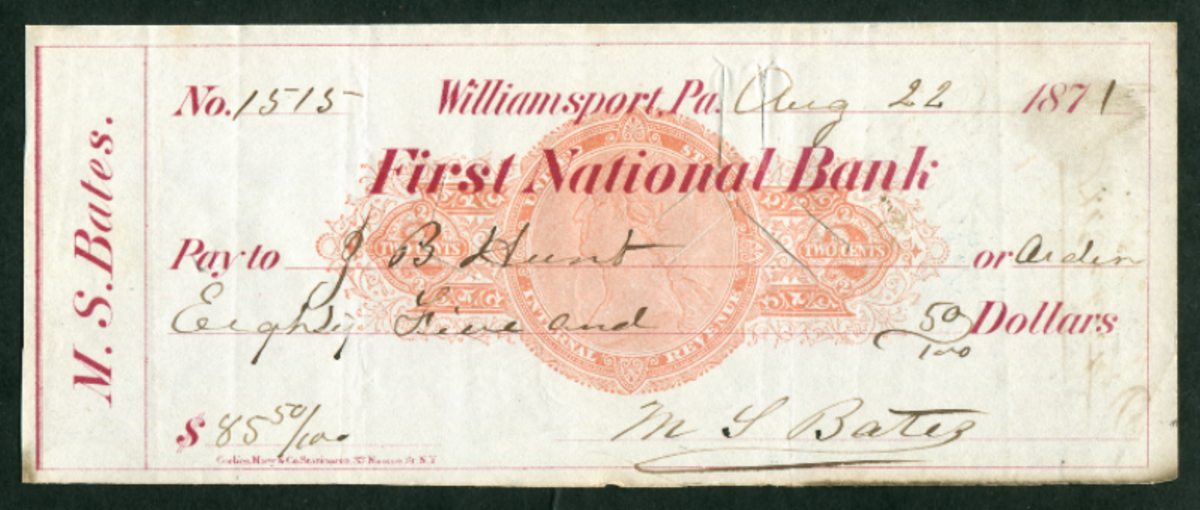 M. S. Bates.
No. 1515 Williamsport, Pa. Aug 22 1871
First National Bank
UNITED STATES
TWO CENTS TWO CENTS
INTERNAL REVENUE
Pay to J B Hunt or Order
Eighty Five and 50/100 Dollars
$ 85 50/100
M S Bates
& Co. Stationers, 37 Nassau St. N.Y.